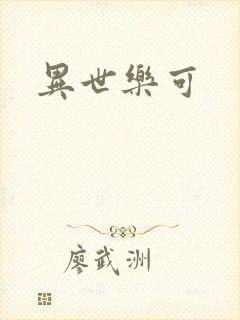 異世樂可
廖武洲